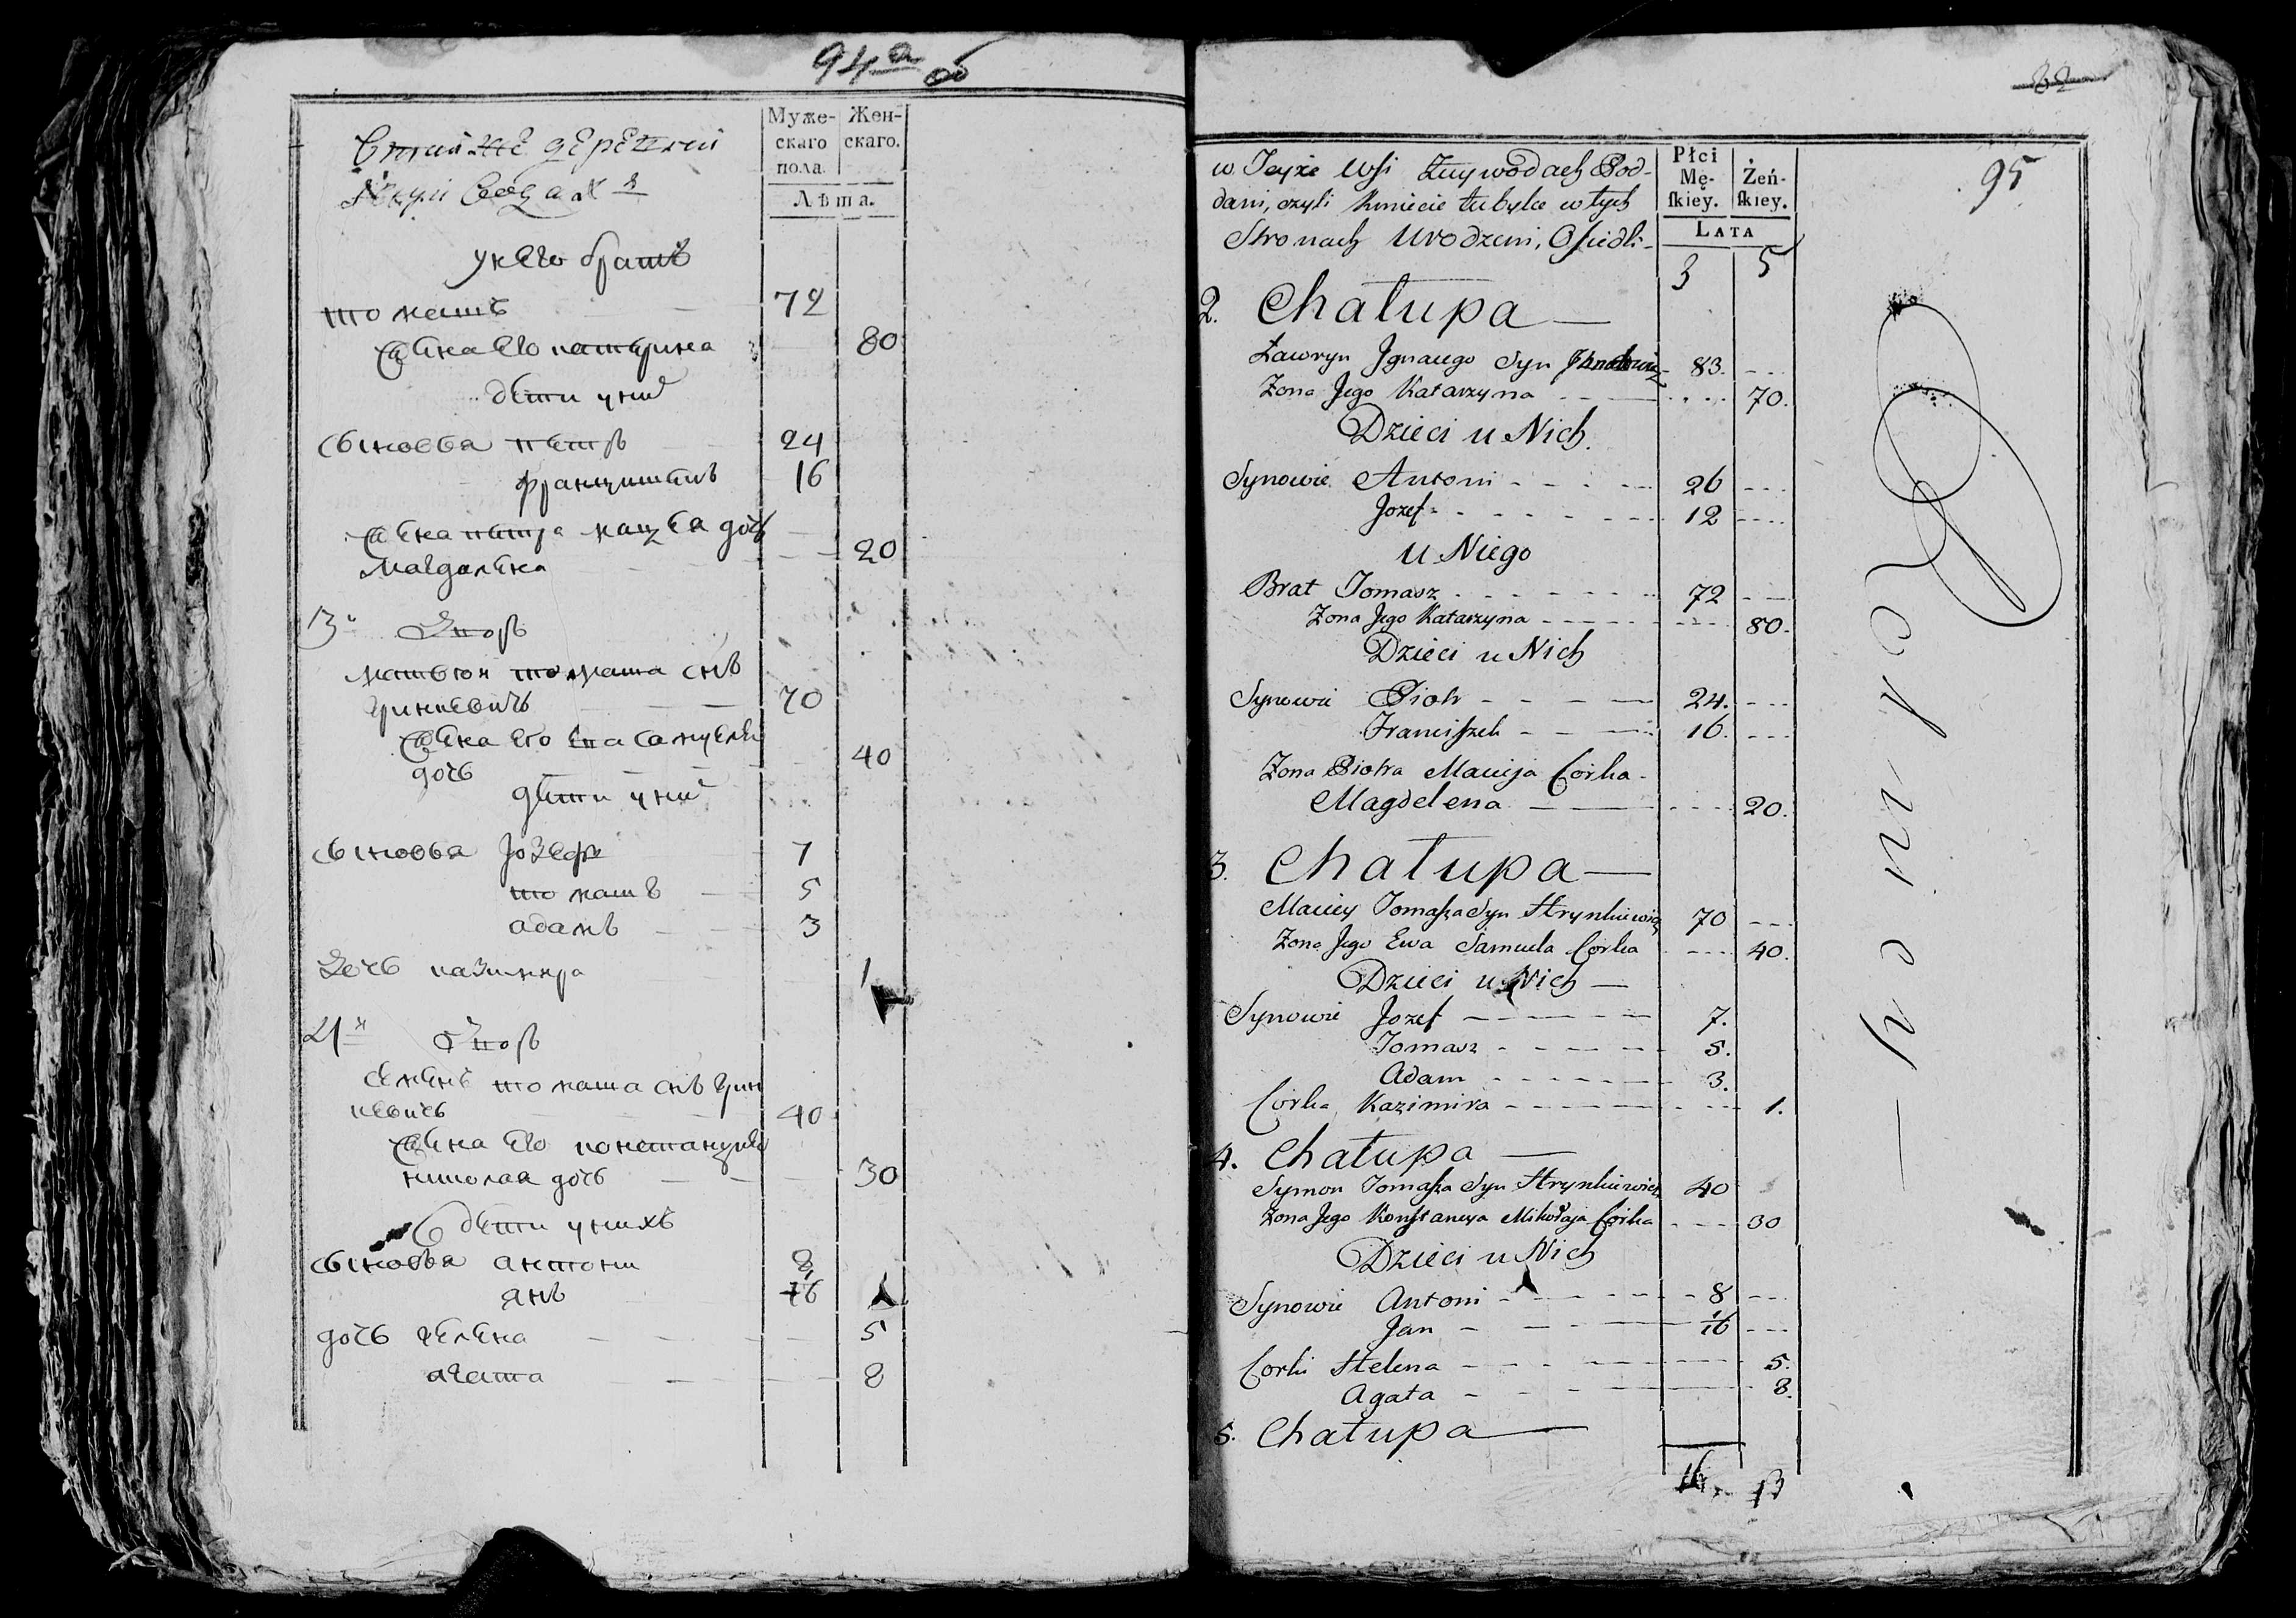 94а об
Муже-
скаго
пола.
Жен-
скаго.
Лѣта.
в той же деревни
у него братъ
томашъ 72
жена его катерина 80
дети у них
сыновья петръ 24
францишекъ 16
жена петра мацея дочь
магдалена 20
3й Дворъ
матвей томаша снъ
гринкевичъ 70
жена его ева самуела
дочь 40
дети у них
сыновья Іозефъ 7
томашъ 5
адамъ 3
Дочь казимира 1
4й Дворъ
семенъ томаша снъ грин
кевичъ 40
жена его констанция
николая дочь 30
дети у нихъ
сыновья антони 8
янъ 16
дочь гелена 5
агата 8
82
95
w Teyże Wsi Żuywodach Pod-
dani, czyli Kmiecie tubylce w tych
Stronach Urodzeni, Osiedli-
Płci
Mę-
skiey.
Żeń-
skiey.
LATA
3 5
2. Chałupa —
Ławryn Jgnacego Syn 83.
Zona Jego Katarzyna 70.
Dzieci u Nich.
Synowie Antoni 26
Jozef 12
u Niego
Brat Tomasz 72
Zona Jego Katarzyna 80.
Dzieci u Nich
Synowie Piotr 24.
Franciszek 16.
Zona Piotra Macieja Corka
Magdelena 20.
3. Chałupa —
Maciey Tomasza Syn Hrynkiewicz 70
Zona Jego Ewa Samuela Corka 40.
Dzieci u Nich —
Synowie Jozef 7.
Tomasz 5.
Adam 3.
Corka Kazimira 1.
4. Chałupa —
Symon Tomasza Syn Hrynkiewicz 40
Zona Jego Konstancya Mikołaja Corka 30
Dzieci u Nich
Synowie Antoni 8
Jan 16
Corki Helena 5.
Agata 8.
5. Chałupa —
16. 13